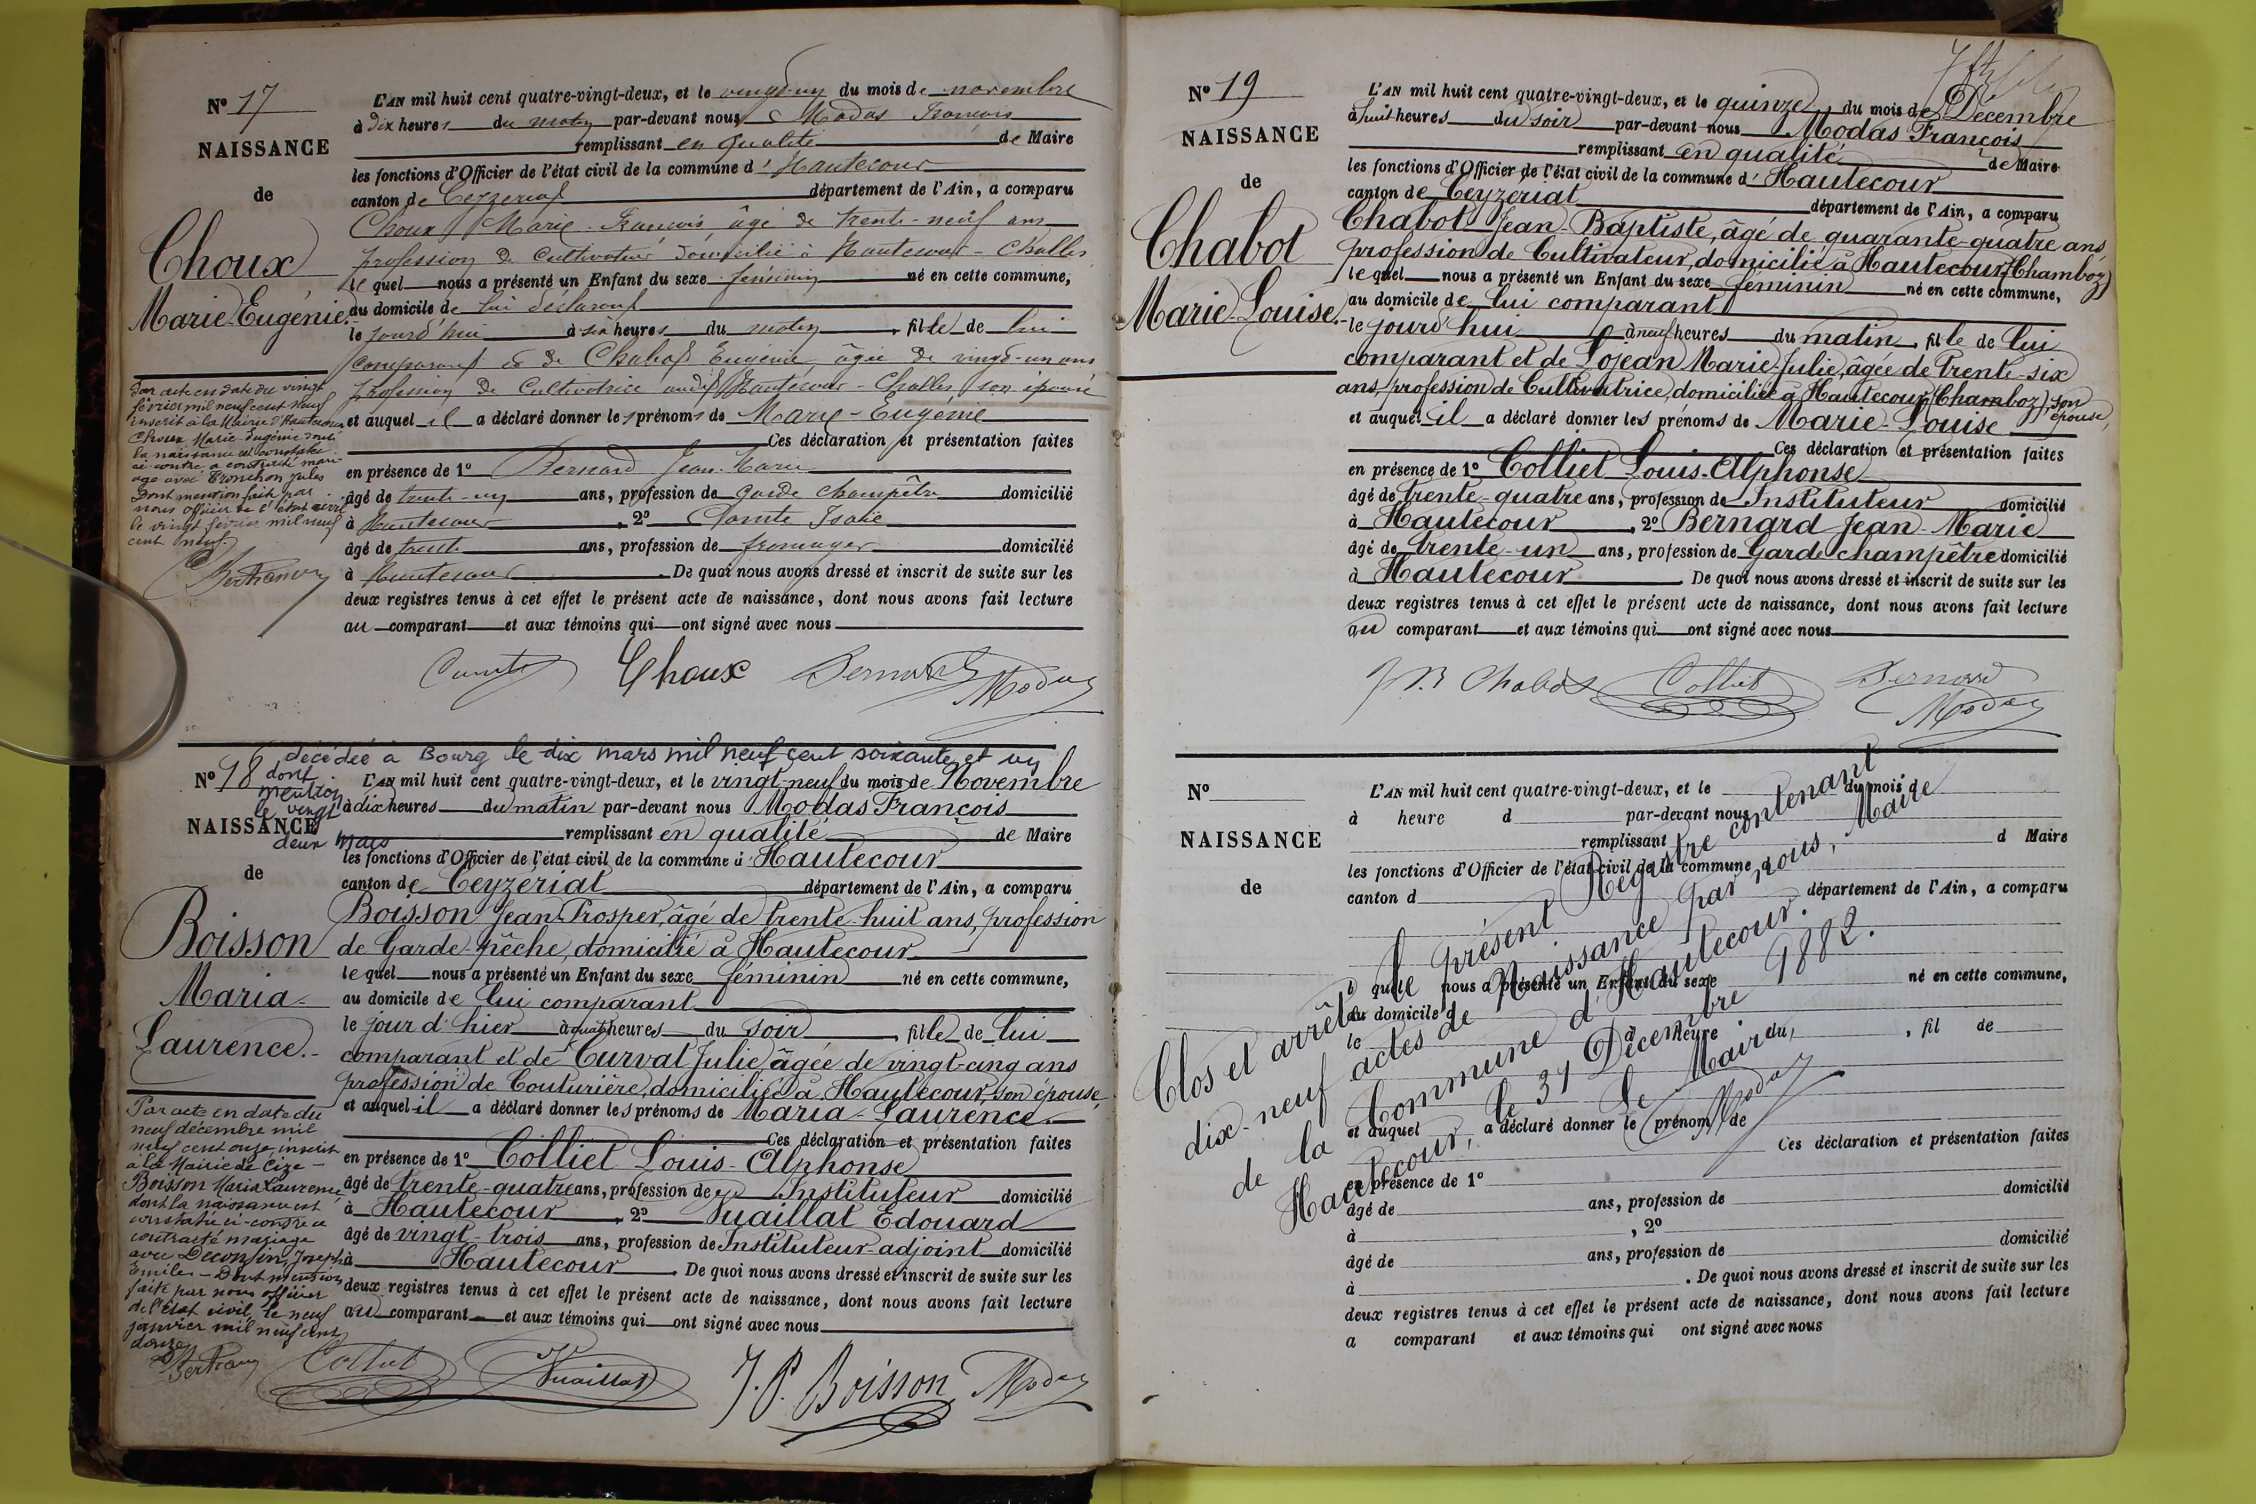 Nº 17
NAISSANCE
de
Choux
Marie-Eugénie.
L'AN mil huit cent quatre-vingt-deux, et le vingt-un du mois de novembre
à dix heures du matin par-devant nous Modas François
remplissant en qualité de Maire
les fonctions d'Officier de l'état civil de la commune d'Hautecour
canton de Ceyzeriat département de l'Ain, a comparu
Choux Marie-François, âgé de trente-neuf ans
profession de Cultivateur domicilié à Hautecour - Challes
le quel nous a présenté un Enfant du sexe féminin né en cette commune,
au domicile de lui déclarant
le jourd'hui à six heures du matin, fille de lui
comparant et de Chabot Eugénie, âgée de vingt-un ans
profession de Cultivatrice audit Hautecour - Challes son épouse
et auquel il a déclaré donner les prénoms de Marie-Eugénie
Ces déclaration et présentation faites
en présence de 1º Bernard Jean-Marie
âgé de trente-un ans, profession de garde champêtre domicilié
à Hautecour, 2º Comte Isaïe
âgé de trente ans, profession de fromager domicilié
à Hautecour. De quoi nous avons dressé et inscrit de suite sur les
deux registres tenus à cet effet le présent acte de naissance, dont nous avons fait lecture
au comparant et aux témoins qui ont signé avec nous
Par acte en date du vingt
février mil neuf cent neuf
inscrit à la Mairie d'Hautecour
Choux Marie Eugénie dont
la naissance est constatée
ci-contre, a contracté mari-
age avec Tronchon Jules
Dont mention fait par
nous officier de l'état civil
le vingt février mil neuf
cent neuf.
Comte Choux Bernard
Modas
décédée à Bourg le dix mars mil neuf cent soixante et un
dont
mention
le vingt
deux mars
Nº 18
NAISSANCE
de
Boisson
Maria-
Laurence.-
L'AN mil huit cent quatre-vingt-deux, et le vingt-neuf du mois de Novembre
à dix heures du matin par-devant nous Modas François
remplissant en qualité de Maire
les fonctions d'Officier de l'état civil de la commune d'Hautecour
canton de Ceyzériat département de l'Ain, a comparu
Boisson Jean-Prosper, âgé de trente-huit ans, profession
de Garde-pêche, domicilié à Hautecour
le quel nous a présenté un Enfant du sexe féminin né en cette commune,
au domicile de lui comparant
le jour d'hier à quatre heures du soir, fille de lui
comparant et de Curvat Julie, âgée de vingt-cinq ans
profession de Couturière, domiciliée à Hautecour, son épouse,
et auquel il a déclaré donner les prénoms de Maria-Laurence.
Ces déclaration et présentation faites
en présence de 1º Colliet Louis-Alphonse
âgé de trente-quatre ans, profession de Instituteur domicilié
à Hautecour, 2º Vuaillat Edouard
âgé de vingt-trois ans, profession de Instituteur-adjoint domicilié
à Hautecour. De quoi nous avons dressé et inscrit de suite sur les
deux registres tenus à cet effet le présent acte de naissance, dont nous avons fait lecture
au comparant et aux témoins qui ont signé avec nous
Par acte en date du
neuf décembre mil
neuf cent onze, inscrit
à la Mairie de Cize -
Boisson Maria Laurence
dont la naissance est
constatée ci-contre a
contracté mariage
avec Joseph
Emile - Dont mention
faite par nous officier
de l'état civil, le neuf
janvier mil neuf cent
douze
Colliet Vuaillat J.P. Boisson Modas
Nº 19
NAISSANCE
de
Chabot
Marie-Louise.-
L'AN mil huit cent quatre-vingt-deux, et le quinze du mois de Décembre
à huit heures du soir par-devant nous Modas François
remplissant en qualité de Maire
les fonctions d'Officier de l'état civil de la commune d'Hautecour
canton de Ceyzériat département de l'Ain, a comparu
Chabot Jean-Baptiste, âgé de quarante-quatre ans,
profession de Cultivateur, domicilié à Hautecour (Chamboz)
le quel nous a présenté un Enfant du sexe féminin né en cette commune,
au domicile de lui comparant
le jourd'hui à neuf heures du matin, fille de lui
comparant et de Lojean Marie-Julie, âgée de trente-six
ans, profession de Cultivatrice, domiciliée à Hautecour (Chamboz), son épouse,
et auquel il a déclaré donner les prénoms de Marie-Louise
Ces déclaration et présentation faites
en présence de 1º Colliet Louis-Alphonse
âgé de trente-quatre ans, profession de Instituteur domicilié
à Hautecour, 2º Bernard Jean-Marie
âgé de trente-un ans, profession de Garde champêtre domicilié
à Hautecour. De quoi nous avons dressé et inscrit de suite sur les
deux registres tenus à cet effet le présent acte de naissance, dont nous avons fait lecture
au comparant et aux témoins qui ont signé avec nous
J.B Chabot Colliet Bernard
Modas
Nº
NAISSANCE
de
L'AN mil huit cent quatre-vingt-deux, et le du mois de
à heure d par-devant nous
remplissant d Maire
les fonctions d'Officier de l'état civil de la commune d
canton d département de l'Ain, a comparu
l quel nous a présenté un Enfant du sexe né en cette commune,
au domicile d
le à heure du , fil de
et auquel a déclaré donner le prénom de
Ces déclaration et présentation faites
en présence de 1º
âgé de ans, profession de domicilié
à , 2º
âgé de ans, profession de domicilié
à . De quoi nous avons dressé et inscrit de suite sur les
deux registres tenus à cet effet le présent acte de naissance, dont nous avons fait lecture
a comparant et aux témoins qui ont signé avec nous
Clos et arrêté le présent Registre contenant
dix-neuf actes de Naissance par nous, Maire
de la Commune d'Hautecour.
Hautecour, le 31 Décembre 1882.
Le Maire,
Modas